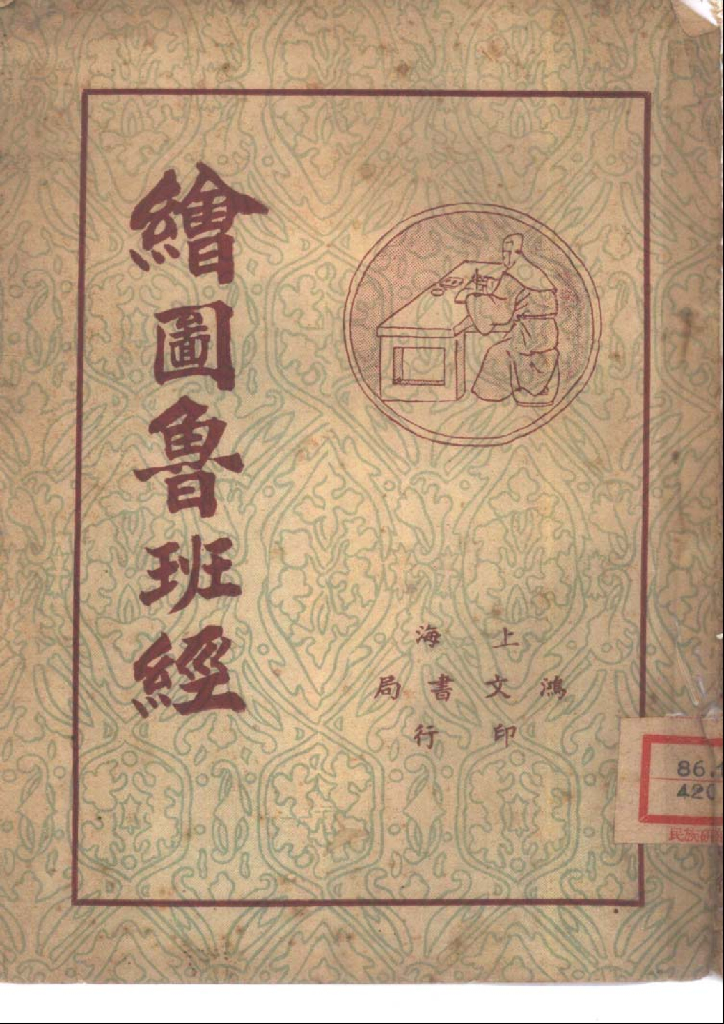 繪圖魯班經
上海
鴻文書局
印行
86.
420
民族研